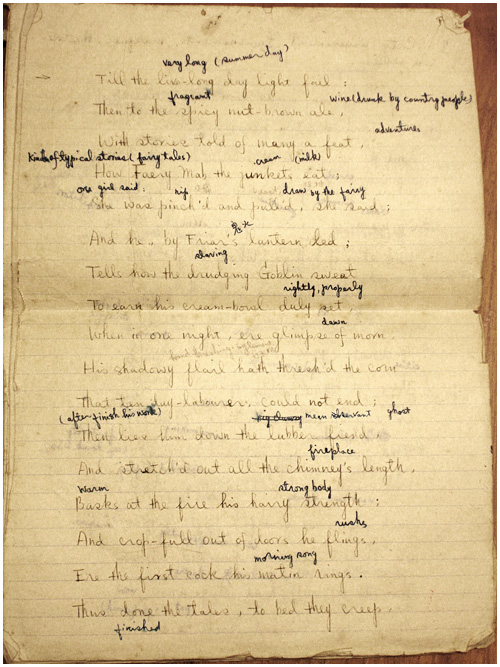 very long (summer day)
Till the live-long day light fail:
fragrant wine (drunk by country people)
Then to the spicy nut-brown ale,
adventures
With stories told of many a feat,
Kinds of typical stories (fairy tales) cream (milk
How Faery Mab the junkets eat;
one girl said: nip drawn by the fairy
She was pinch'd and pull'd, she said;
鬼火
And he, by Friar's lantern led;
slaving
Tells how the drudging Goblin sweat
rightly, properly
To earn his cream-bowl duly set,
dawn
When in one night, ere glimpse of morn.
His shadowy flail hath thresh'd the corn
That ten day-labourers could not end;
(after finish his work) mean servant ghost
Then lies him down the lubber fiend
fireplace
And stretch'd out all the chimney's length,
warm strong body
Basks at the fire his hairy strength;
rushes
And crop-full out of doors he flings,
morning song
Ere the first cock his matin rings.
Thus done the tales, to bed they creep,
finished